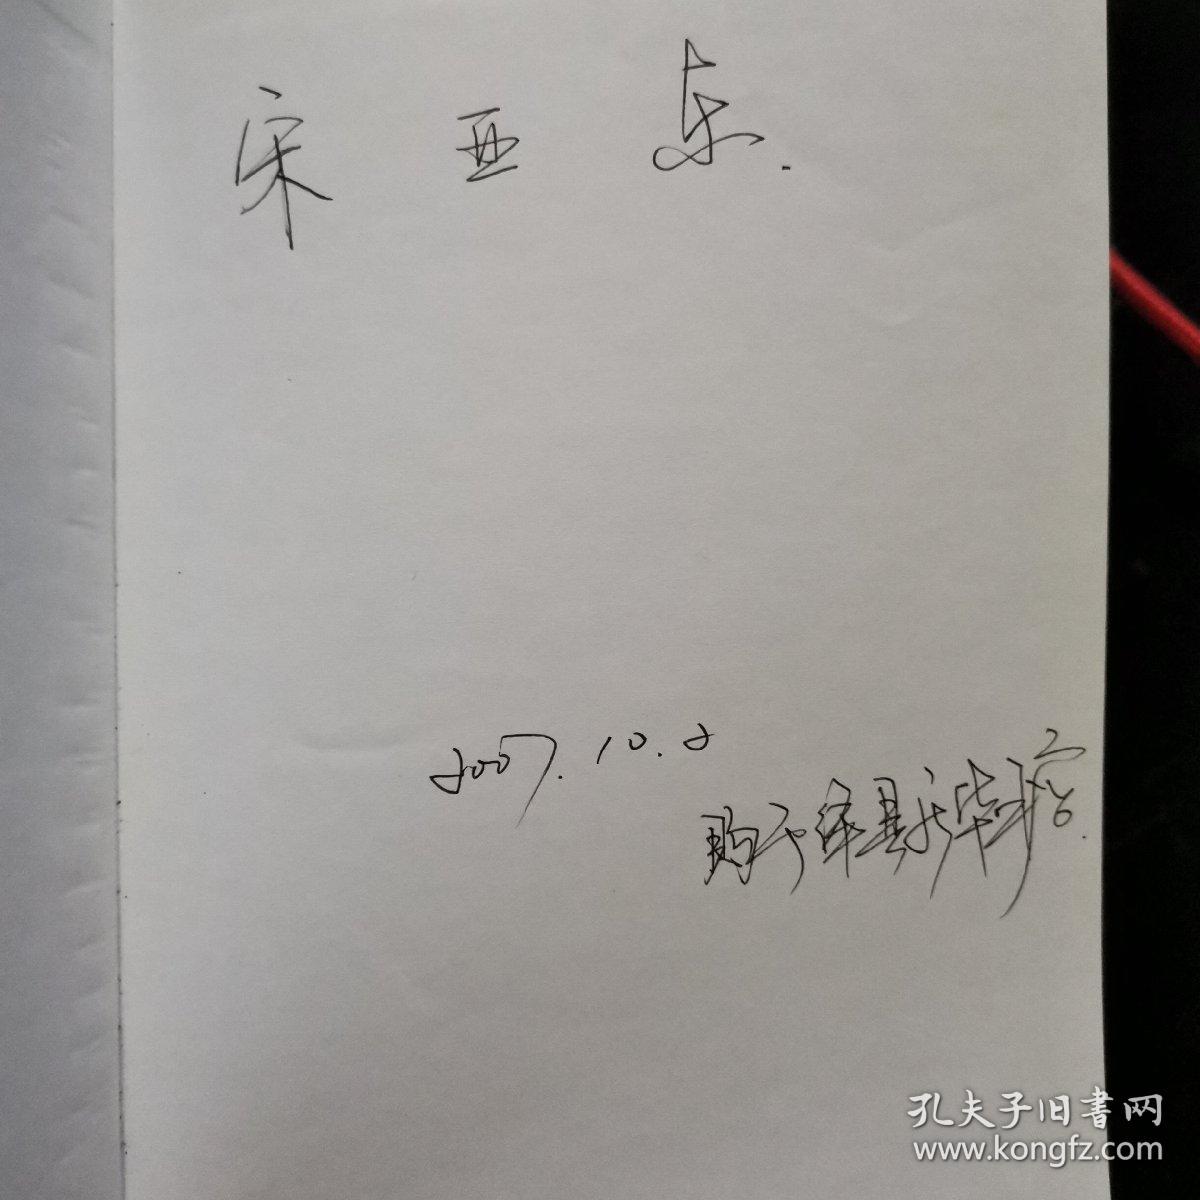 宋亚东.
2007.10.2
购于绛县新华书店.
孔夫子旧書网
www.kongfz.com